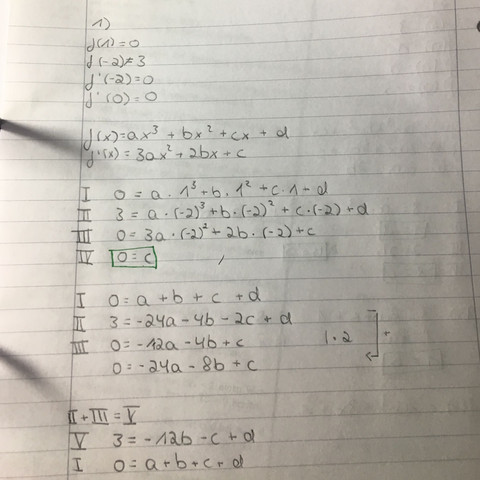 1)
f(1)=0
f(-2)=3
f'(-2)=0
f'(0)=0
f(x)=ax³+bx²+cx+d
f'(x)=3ax²+2bx+c
I 0=a·1³+b·1²+c·1+d
II 3=a·(-2)³+b·(-2)²+c·(-2)+d
III 0=3a·(-2)²+2b·(-2)+c
IV 0=c
I 0=a+b+c+d
II 3=-24a-4b-2c+d
III 0=-12a-4b+c |·2 +
0=-24a-8b+c
II+III=V
V 3=-12b-c+d
I 0=a+b+c+d